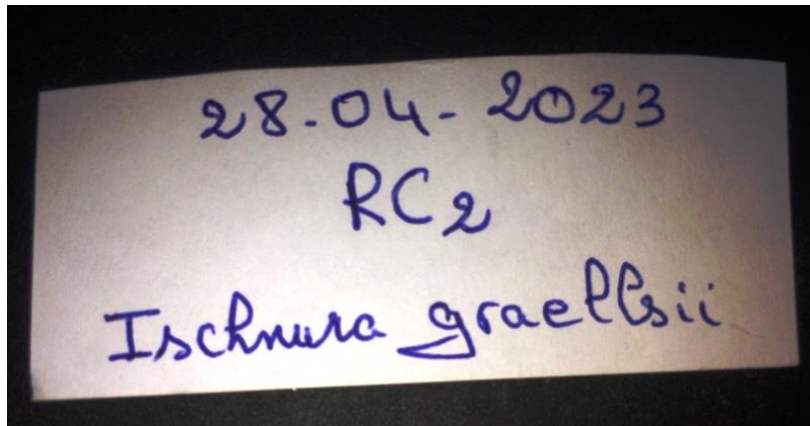 28-04-2023
RC2
Ischnura graellsii